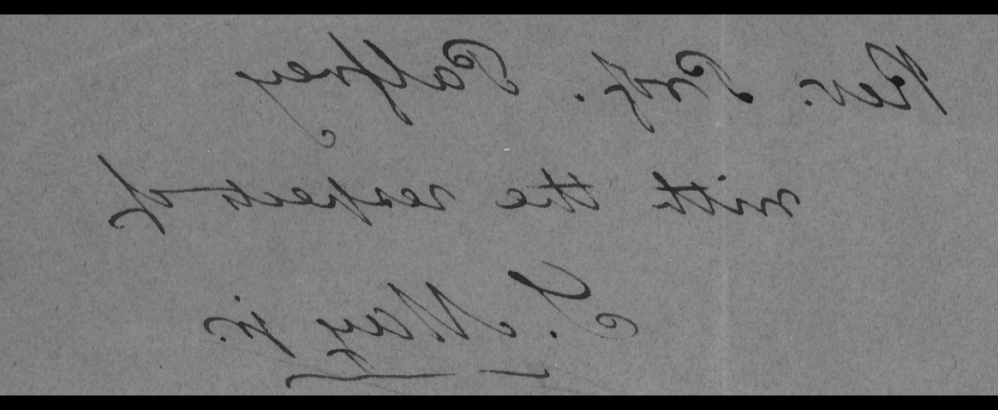 Rev. Prof. Palfrey
with the respects of
S. May jr.